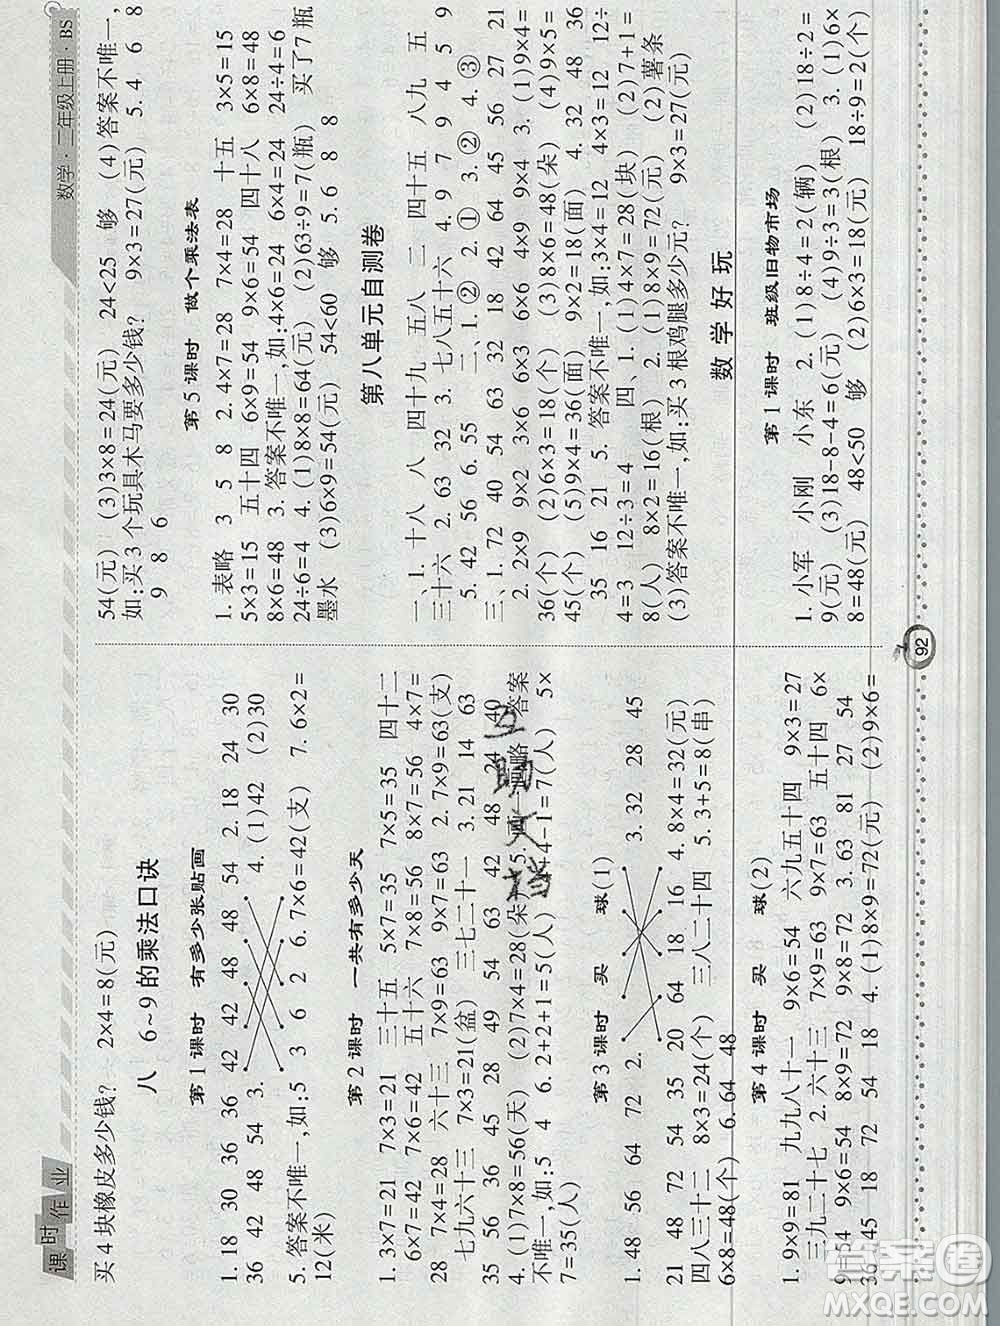 课时作业
数学·二年级上册·BS
买4块橡皮多少钱? 2×4=8(元)
八 6~9的乘法口诀
第1课时 有多少张贴画
1. 18 30 36 36 42 42 48 48 54 2. 18 24 30
36 42 48 54 3. 4. (1)42 (2)30
5. 答案不唯一,如:5 3 6 2 6. 7×6=42(支) 7. 6×2=
12(米)
第2课时 一共有多少天
1. 3×7=21 7×3=21 三十五 5×7=35 7×5=35 四十二
6×7=42 7×6=42 五十六 7×8=56 8×7=56 4×7=
28 7×4=28 六十三 7×9=63 9×7=63 2. 7×9=63(支)
七九六十三 7×3=21(盆) 三七二十一 3. 21 14 63
35 56 36 45 28 49 54 63 42 48 24 40
4. (1)7×8=56(天) (2)7×4=28(朵) 5. 画一画略 答案
不唯一,如:5 4 6. 2+2+1=5(人) 4+4-1=7(人) 5×
7=35(人)
第3课时 买 球(1)
1. 48 56 64 72 2. 3. 32 28 45
21 48 72 54 35 20 64 18 16 4. 8×4=32(元)
四八三十二 8×3=24(个) 三八二十四 5. 3+5=8(串)
6×8=48(个) 6. 64 48
第4课时 买 球(2)
1. 9×9=81 九九八十一 9×6=54 六九五十四 9×3=27
三九二十七 2. 六十三 7×9=63 9×7=63 五十四 6×
9=54 9×6=54 8×9=72 9×8=72 3. 63 81 27 54
36 45 18 72 54 18 4. (1)8×9=72(元) (2)9×6=
54(元) (3)3×8=24(元) 24<25 够 (4)答案不唯一,
如:买3个玩具木马要多少钱? 9×3=27(元) 5. 4 6 8
9 8 6
第5课时 做个乘法表
1. 表略 3 5 8 2. 4×7=28 7×4=28 十五 3×5=15
5×3=15 五十四 6×9=54 9×6=54 四十八 6×8=48
8×6=48 3. 答案不唯一,如:4×6=24 6×4=24 24÷4=6
24÷6=4 4. (1)8×8=64(元) (2)63÷9=7(瓶) 买了7瓶
墨水 (3)6×9=54(元) 54<60 够 5. 6 8 8
第八单元自测卷
一、1. 十八 八 四十九 五八 二 四十五 八九 五
三十六 2. 63 32 3. 七八五十六 4. 9 7 9 4 5 9
5. 42 56 6. 55 二、1. ② 2. ① 3. ② 4. ③
三、1. 72 40 54 63 32 18 42 64 45 56 27 21
2. 2×9 9×2 3×6 6×3 6×6 4×9 9×4 3. (1)9×4=
36(个) (2)6×3=18(个) (3)8×6=48(朵) (4)9×5=
45(个) (5)9×4=36(面) 9×2=18(面) 4. 32 48 36
35 16 21 5. 答案不唯一,如:3×4=12 4×3=12 12÷
4=3 12÷3=4 四、1. (1)4×7=28(块) (2)7+1=
8(人) 8×2=16(根) 2. (1)8×9=72(元) (2)薯条
(3)答案不唯一,如:买3根鸡腿多少元? 9×3=27(元)
数学好玩
第1课时 班级旧物市场
1. 小军 小刚 小东 2. (1)8÷4=2(辆) (2)18÷2=
9(元) (3)18-8-4=6(元) (4)9÷3=3(根) 3. (1)6×
8=48(元) 48<50 够 (2)6×3=18(元) 18÷9=2(个)
92
答案圈
MXQE.COM